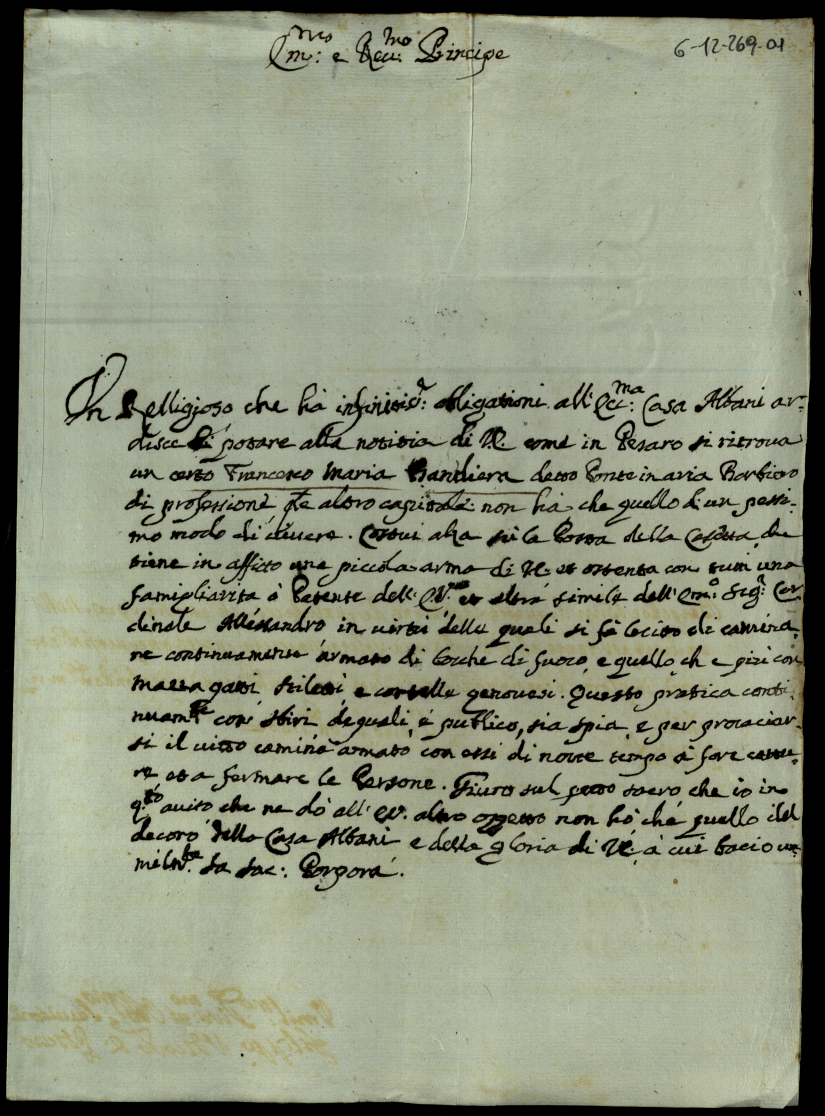 Em:mo e Rev:mo Principe
6-12-269-01
Un Relligioso che hà infinitis:e obligationi all'Ecc:ma Casa Albani ar-
disce di potare alla notitia di VE come in Pesaro si ritrova
un certo Francesco Maria Bandiera detto Ponte in aria Barbiero
di professione, che altro capitale non hà che quello di un pessi-
mo modo di vivere. Costui alza sù la Porta della Casetta, che
tiene in affitto una piccola arma di VE et ostenta con tutti una
famigliarità ò Patente dell'EV et altra simile dell'Em:o Sig:r Car
dinale Alessandro in virtù delle quali si fà lecito di camina
re continuamente armato di bocche di fuoco, e quello ch'e più con
mazza gatti stiletti e cortelle genovesi. Questo pratica conti-
nuam:te con sbiri de quali è publico, sia spia, e per procaciar-
si il vitto camina armato con essi di notte tempo à fare cattu-
re et a fermare le Persone. Giuro sul petto sacro che io in
q:to aviso che ne dò all'EV. altro oggetto non hò che quello del
decoro della Casa Albani e della gloria di VE à cui bacio u-
milm:te la sac: Porpora.